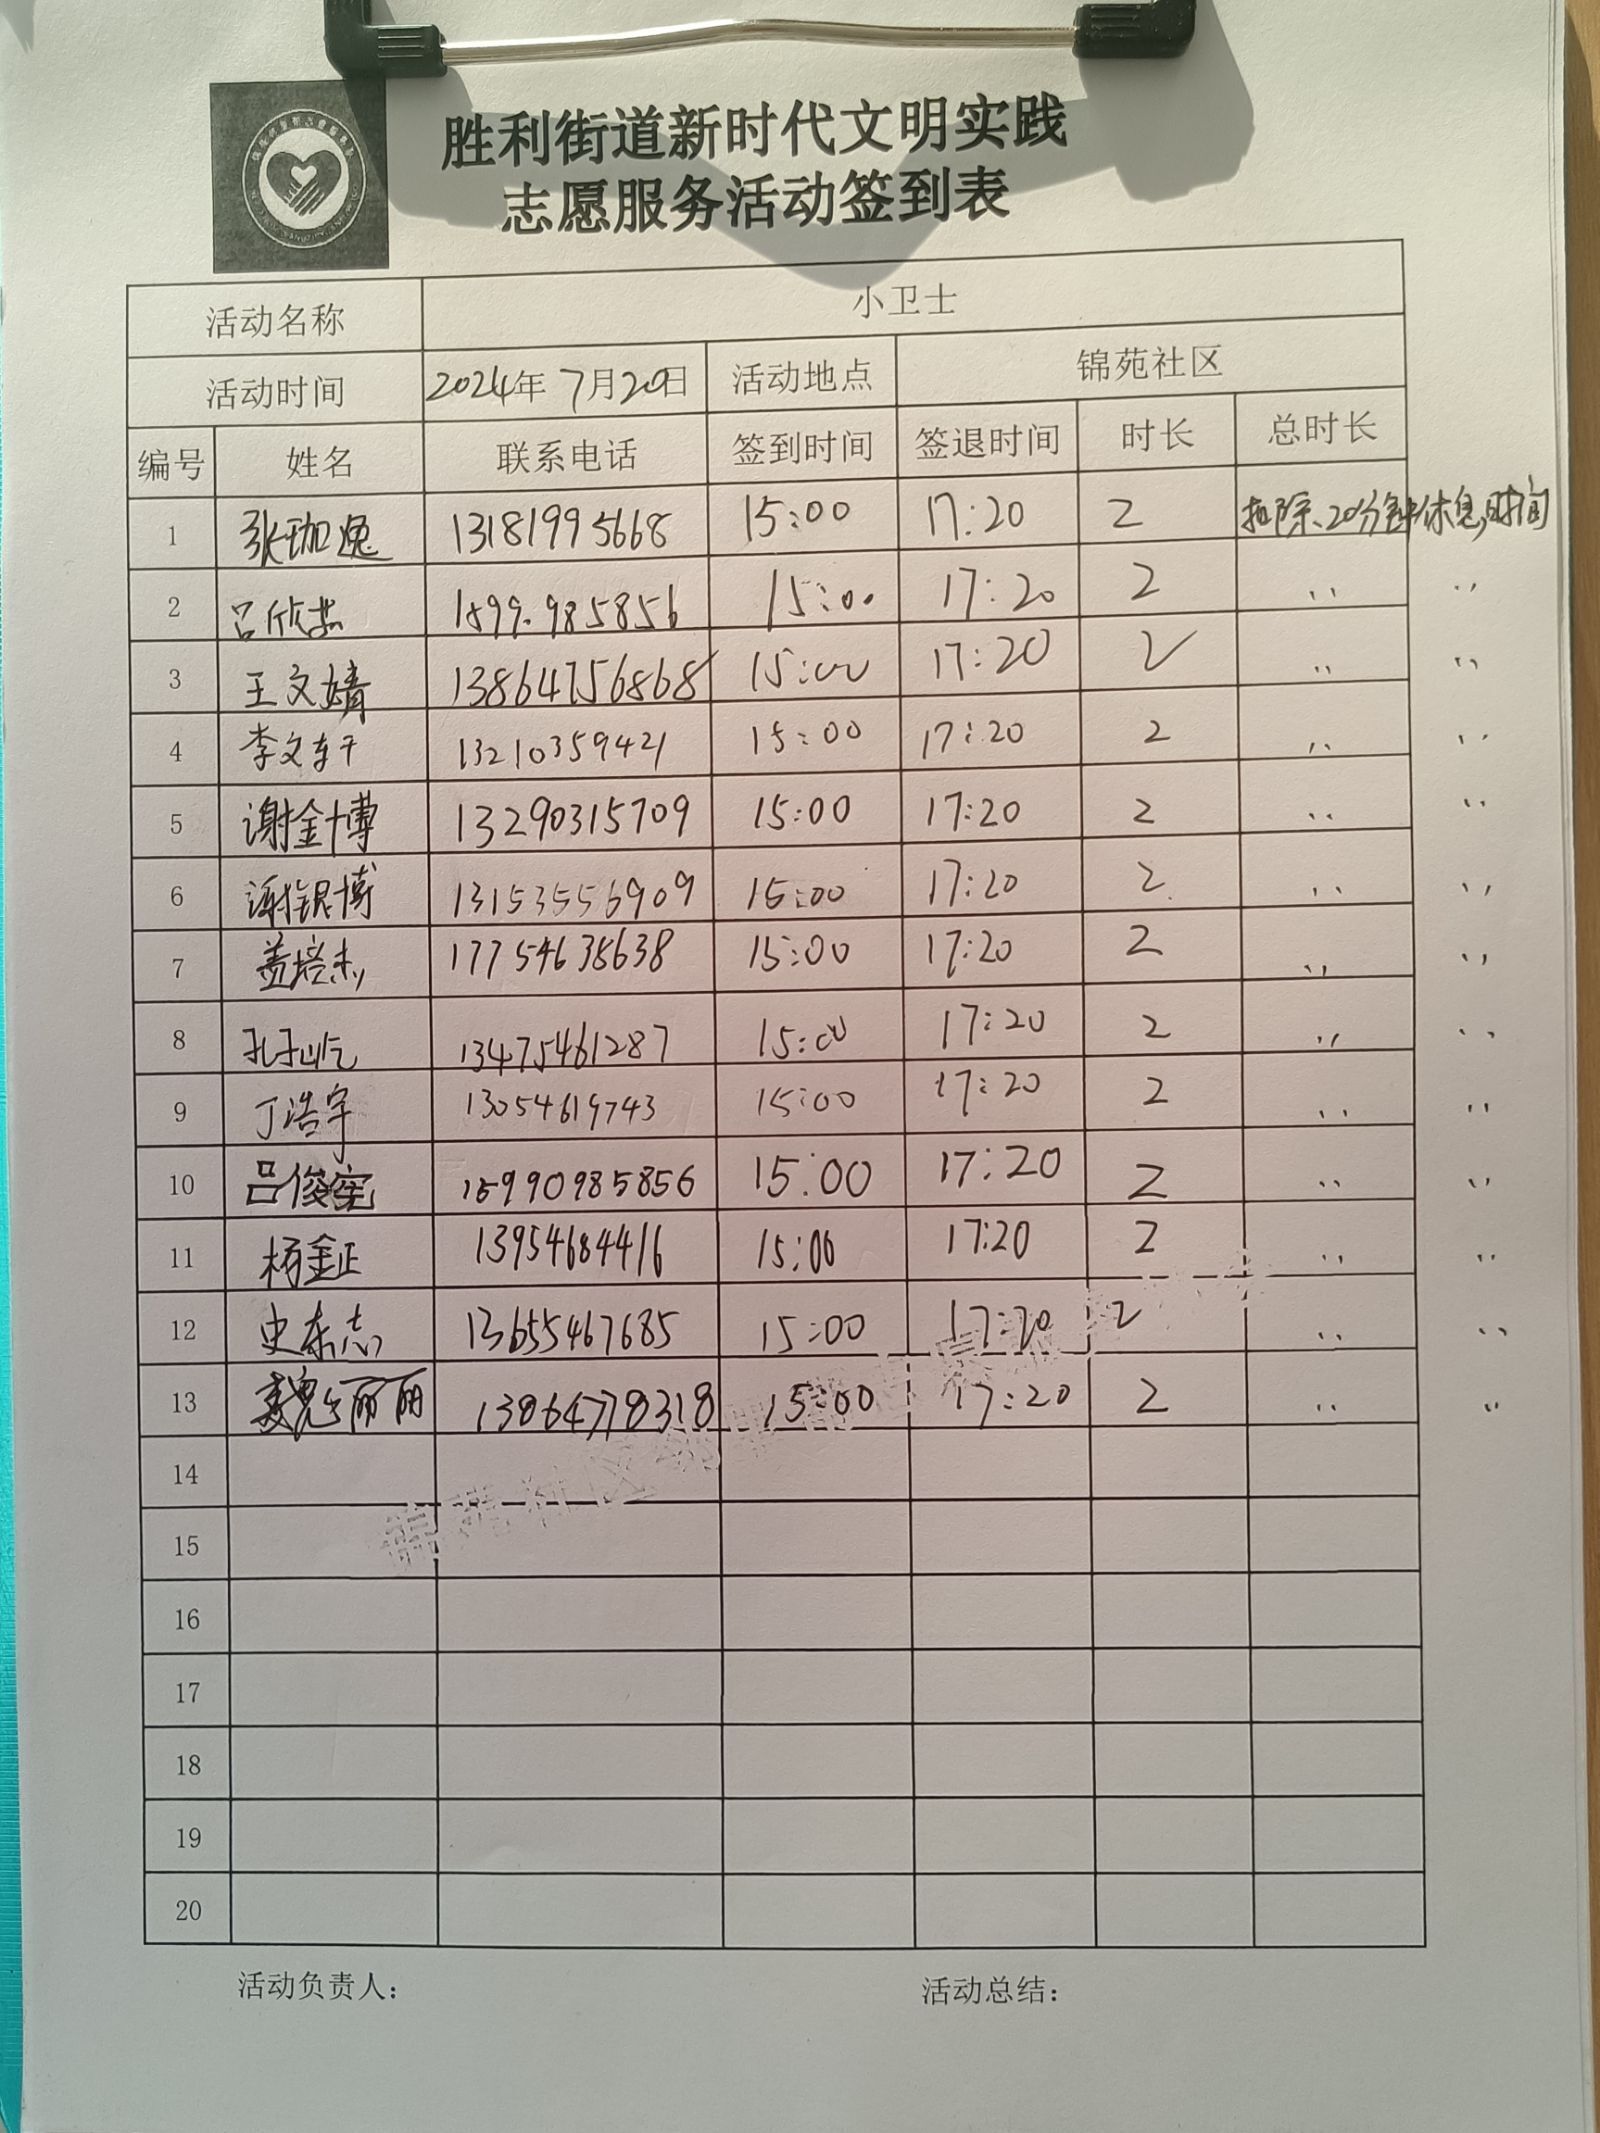 胜利街道新时代文明实践
志愿服务活动签到表
活动名称 小卫士
活动时间 2024年7月20日 活动地点 锦苑社区
编号 姓名 联系电话 签到时间 签退时间 时长 总时长
1 张珈逸 13181995668 15:00 17:20 2 扣除、20分钟休息时间
2 吕欣 15:00 17:20 2 〃 〃
3 王文婧 13864756868 15:00 17:20 2 〃 〃
4 李文轩 13210359421 15:00 17:20 2 〃 〃
5 谢金博 13290315709 15:00 17:20 2 〃 〃
6 谢银博 13153556909 15:00 17:20 2 〃 〃
7 盖培杰 17754638638 15:00 17:20 2 〃 〃
8 孔子屹 13475461287 15:00 17:20 2 〃 〃
9 丁浩宇 13054619743 15:00 17:20 2 〃 〃
10 吕俊 15990985856 15:00 17:20 2 〃 〃
11 杨金正 13954684416 15:00 17:20 2 〃 〃
12 史东志 13655467685 15:00 17:20 2 〃 〃
13 魏丽丽 13864778318 15:00 17:20 2 〃 〃
14
15
16
17
18
19
20
活动负责人： 活动总结：